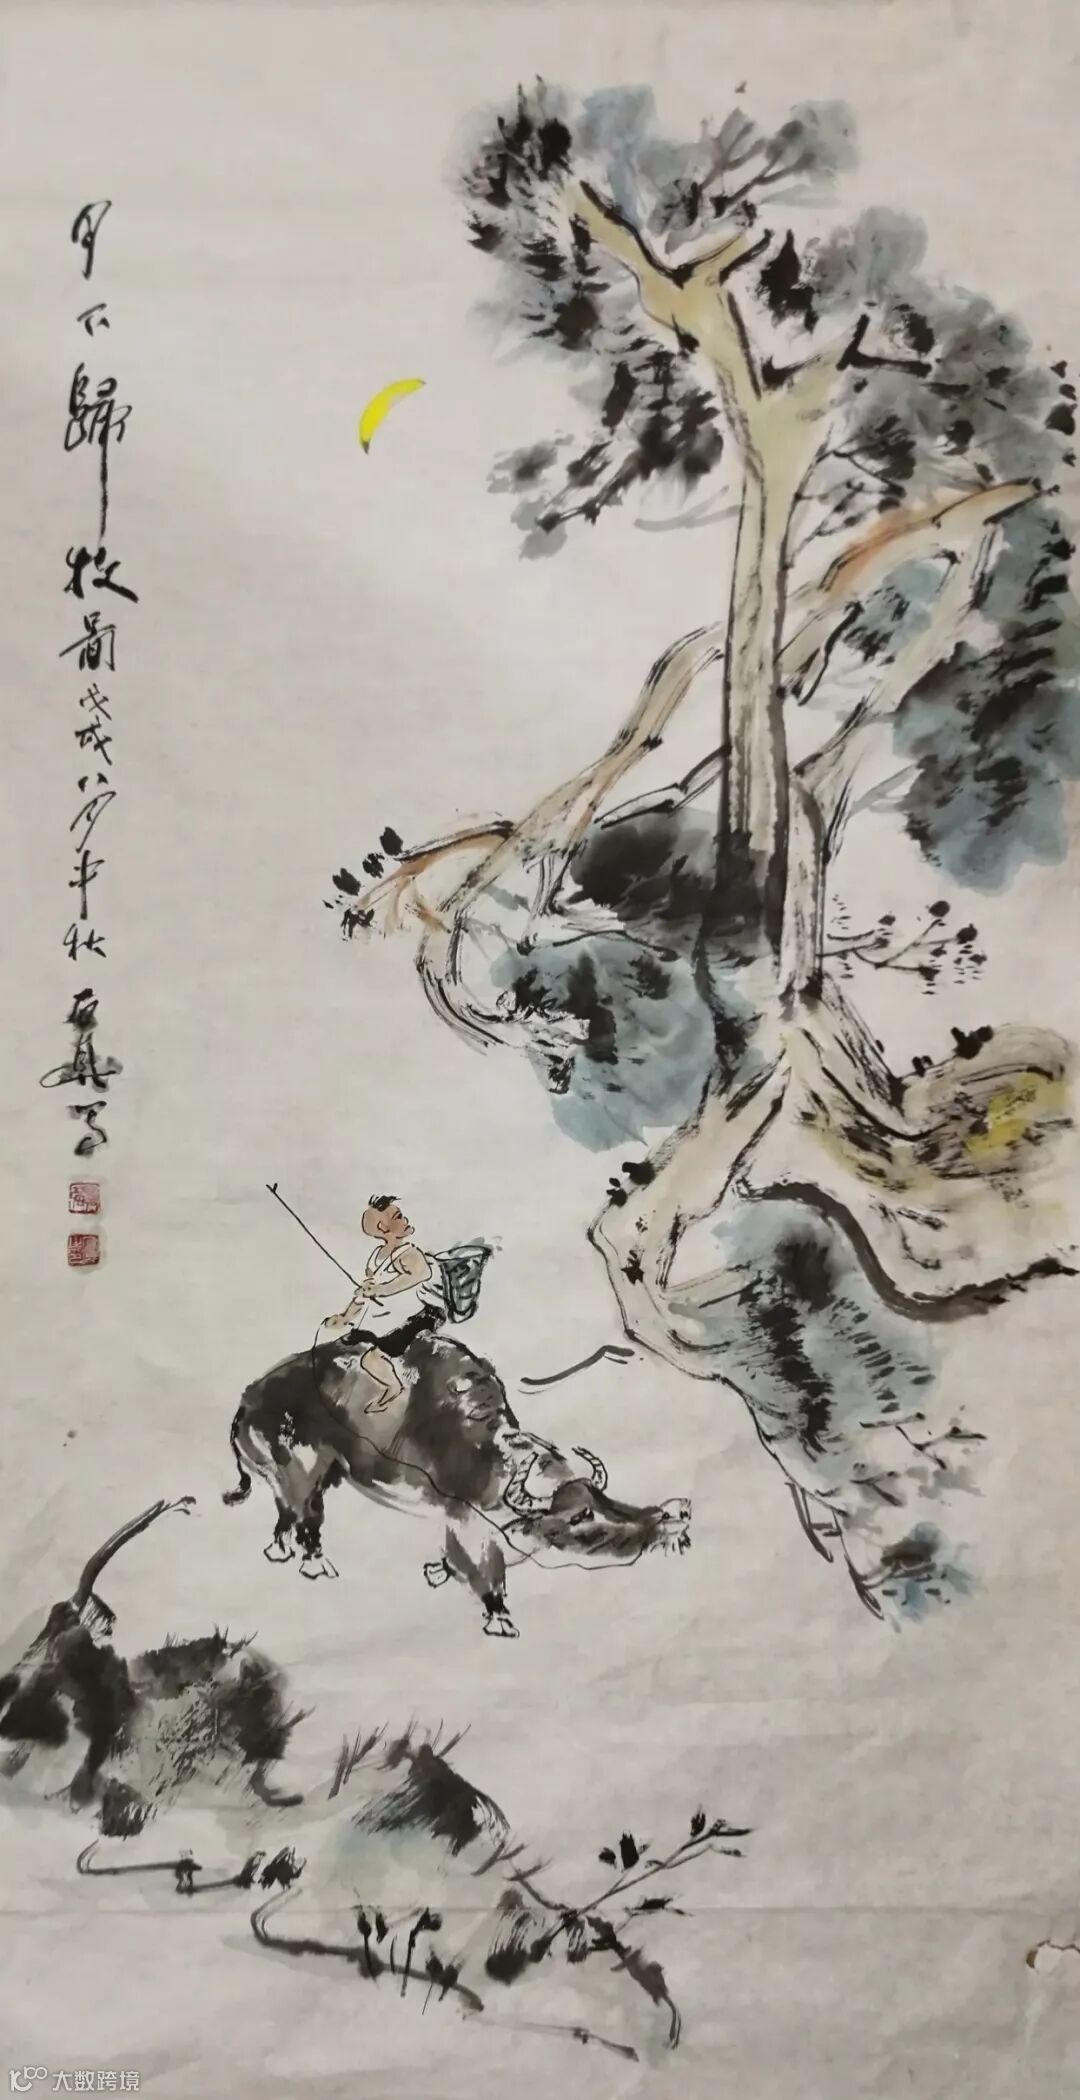 月下歸牧圖戊戌八月中秋石真写
大数跨境